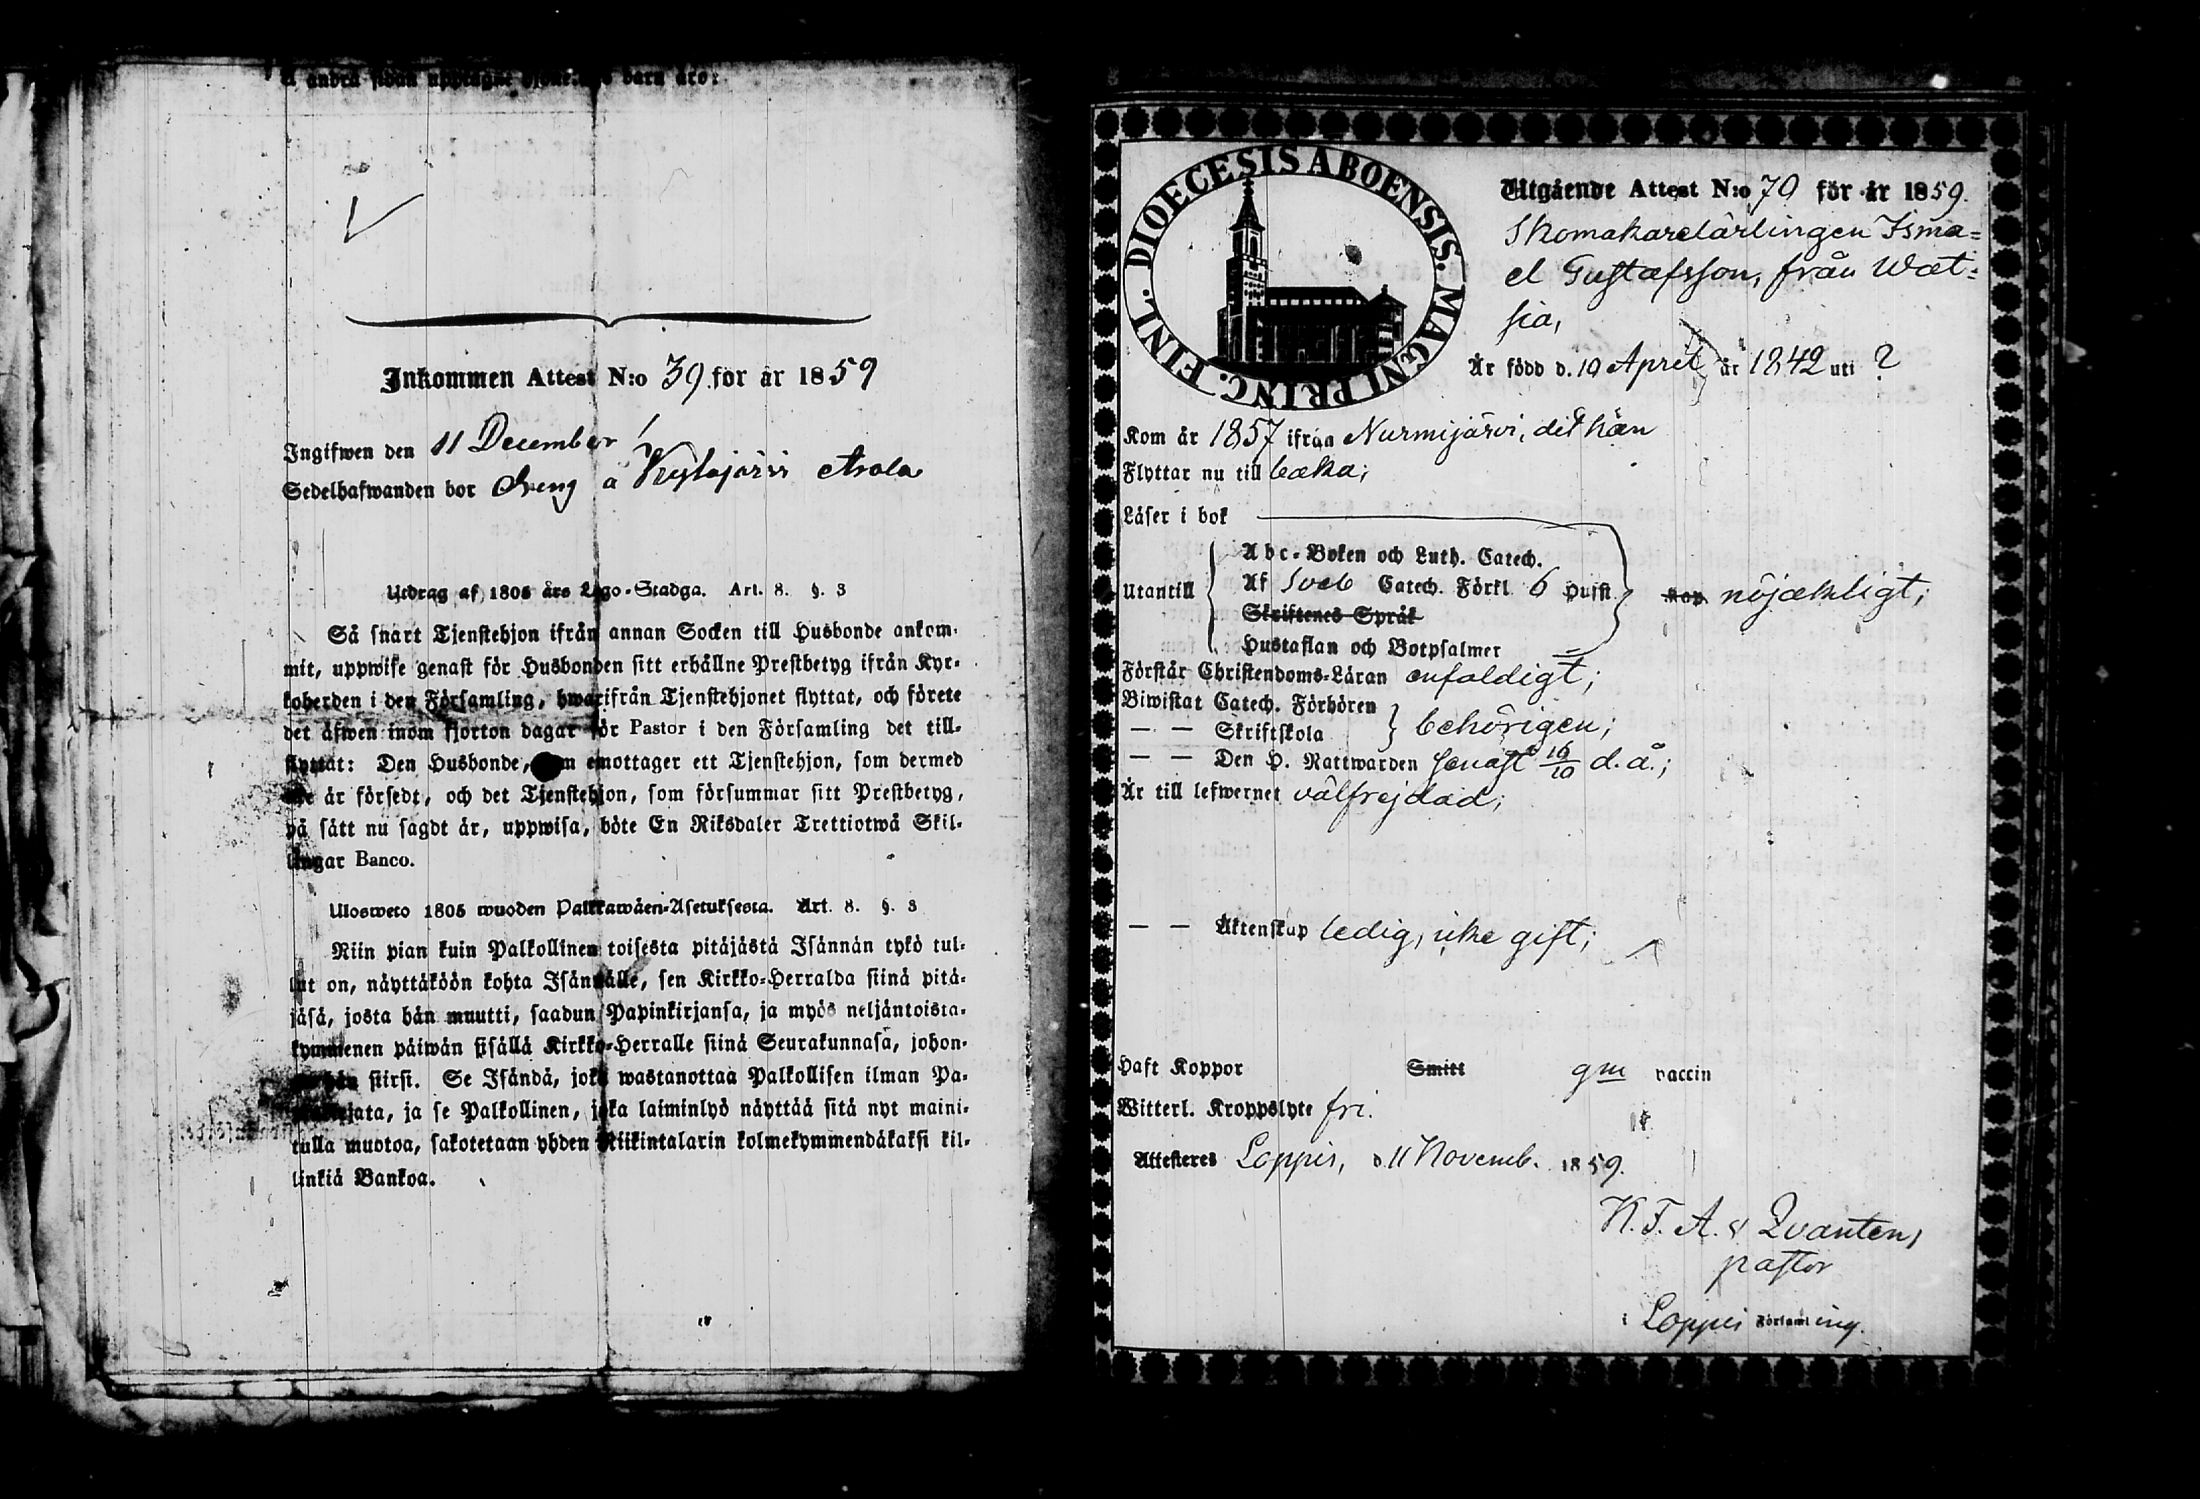 å andra sidan upptagne barn äro:
Inkommen Attest N:o 39 för år 1859
Ingifwen den 11 December
Sedelhafwanden bor dreng å Kytäjärvi
Utdrag af 1805 års Lego-Stadga. Art. 8. §. 3
Så snart Tjenstehjon ifrån annan Socken till Husbonde ankom-
mit, uppwise genast för Husbonden sitt erhållne Prestbetyg ifrån Kyr-
koherden i den Församling, hwarifrån Tjenstehjonet flyttat, och förete
det äfwen inom fjorton dagar för Pastor i den Församling det till-
flyttat: Den Husbonde, som emottager ett Tjenstehjon, som dermed
icke är försedt, och det Tjenstehjon, som försummar sitt Prestbetyg,
på sätt nu sagdt är, uppwisa, böte En Riksdaler Trettiotwå Skil-
lingar Banco.
Ulosweto 1805 wuoden Palkkawäen-Asetuksesta. Art. 8. §. 3
Niin pian kuin Palkollinen toisesta pitäjästä Isännän tykö tul-
lut on, näyttäköön kohta Isännälle, sen Kirkko-Herralda siinä pitä-
jäsä, josta hän muutti, saadun Papinkirjansa, ja myös neljäntoista-
kymmenen päiwän sisällä Kirkko-Herralle siinä Seurakunnasa, johon-
ka hän siirsi. Se Isändä, joka wastanottaa Palkollisen ilman Pa-
pinkirjata, ja se Palkollinen, joka laiminlyö näyttää sitä nyt maini-
tulla muotoa, sakotetaan yhden Riikintalarin kolmekymmendäkaksi kil-
linkiä Bankoa.
DIOECESIS ABOENSIS. MAGNI PRINC. FINL.
Utgående Attest N:o 70 för år 1859.
Skomakarelärlingen Isma=
el Gustafsson, från Wat=
sia,
Är född d. 10 April år 1842 uti ?
Kom år 1857 ifrån Nurmijärvi, dit hän
Flyttar nu till baka;
Läser i bok
Abc-Boken och Luth. Catech.
Utantill Af Sveb Catech. Förkl. 6 Hufst. nöjaktligt;
Skriftenes Språk
Hustaflan och Botpsalmer
Förstår Christendoms-Läran enfaldigt;
Biwistat Catech. Förhören
— — Skriftskola behörigen;
— — Den H. Nattwarden senast 16/10 d. å.;
Är till lefwernet välfrejdad;
— — Äktenskap ledig, icke gift;
Haft Koppor Smitt gm vaccin
Witterl. Kroppslyte fri.
Attesteres Loppis, d 11 Novemb. 1859.
K. F. A. v Qvanten,
pastor
i Loppis Församling.